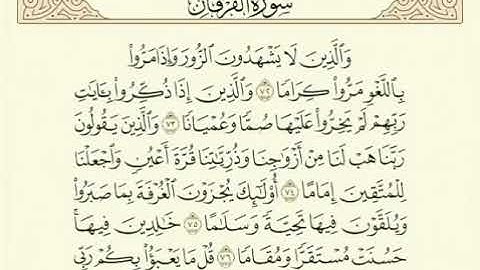 سُورَةُ الفُرْقَانِ
وَالَّذِينَ لَا يَشْهَدُونَ الزُّورَ وَإِذَا مَرُّوا۟
بِاللَّغْوِ مَرُّوا۟ كِرَامًا ٧٢ وَالَّذِينَ إِذَا ذُكِّرُوا۟ بِـَٔايَٰتِ
رَبِّهِمْ لَمْ يَخِرُّوا۟ عَلَيْهَا صُمًّا وَعُمْيَانًا ٧٣ وَالَّذِينَ يَقُولُونَ
رَبَّنَا هَبْ لَنَا مِنْ أَزْوَٰجِنَا وَذُرِّيَّٰتِنَا قُرَّةَ أَعْيُنٍ وَاجْعَلْنَا
لِلْمُتَّقِينَ إِمَامًا ٧٤ أُو۟لَٰٓئِكَ يُجْزَوْنَ الْغُرْفَةَ بِمَا صَبَرُوا۟
وَيُلَقَّوْنَ فِيهَا تَحِيَّةً وَسَلَٰمًا ٧٥ خَٰلِدِينَ فِيهَا ۚ
حَسُنَتْ مُسْتَقَرًّا وَمُقَامًا ٧٦ قُلْ مَا يَعْبَؤُا۟ بِكُمْ رَبِّي